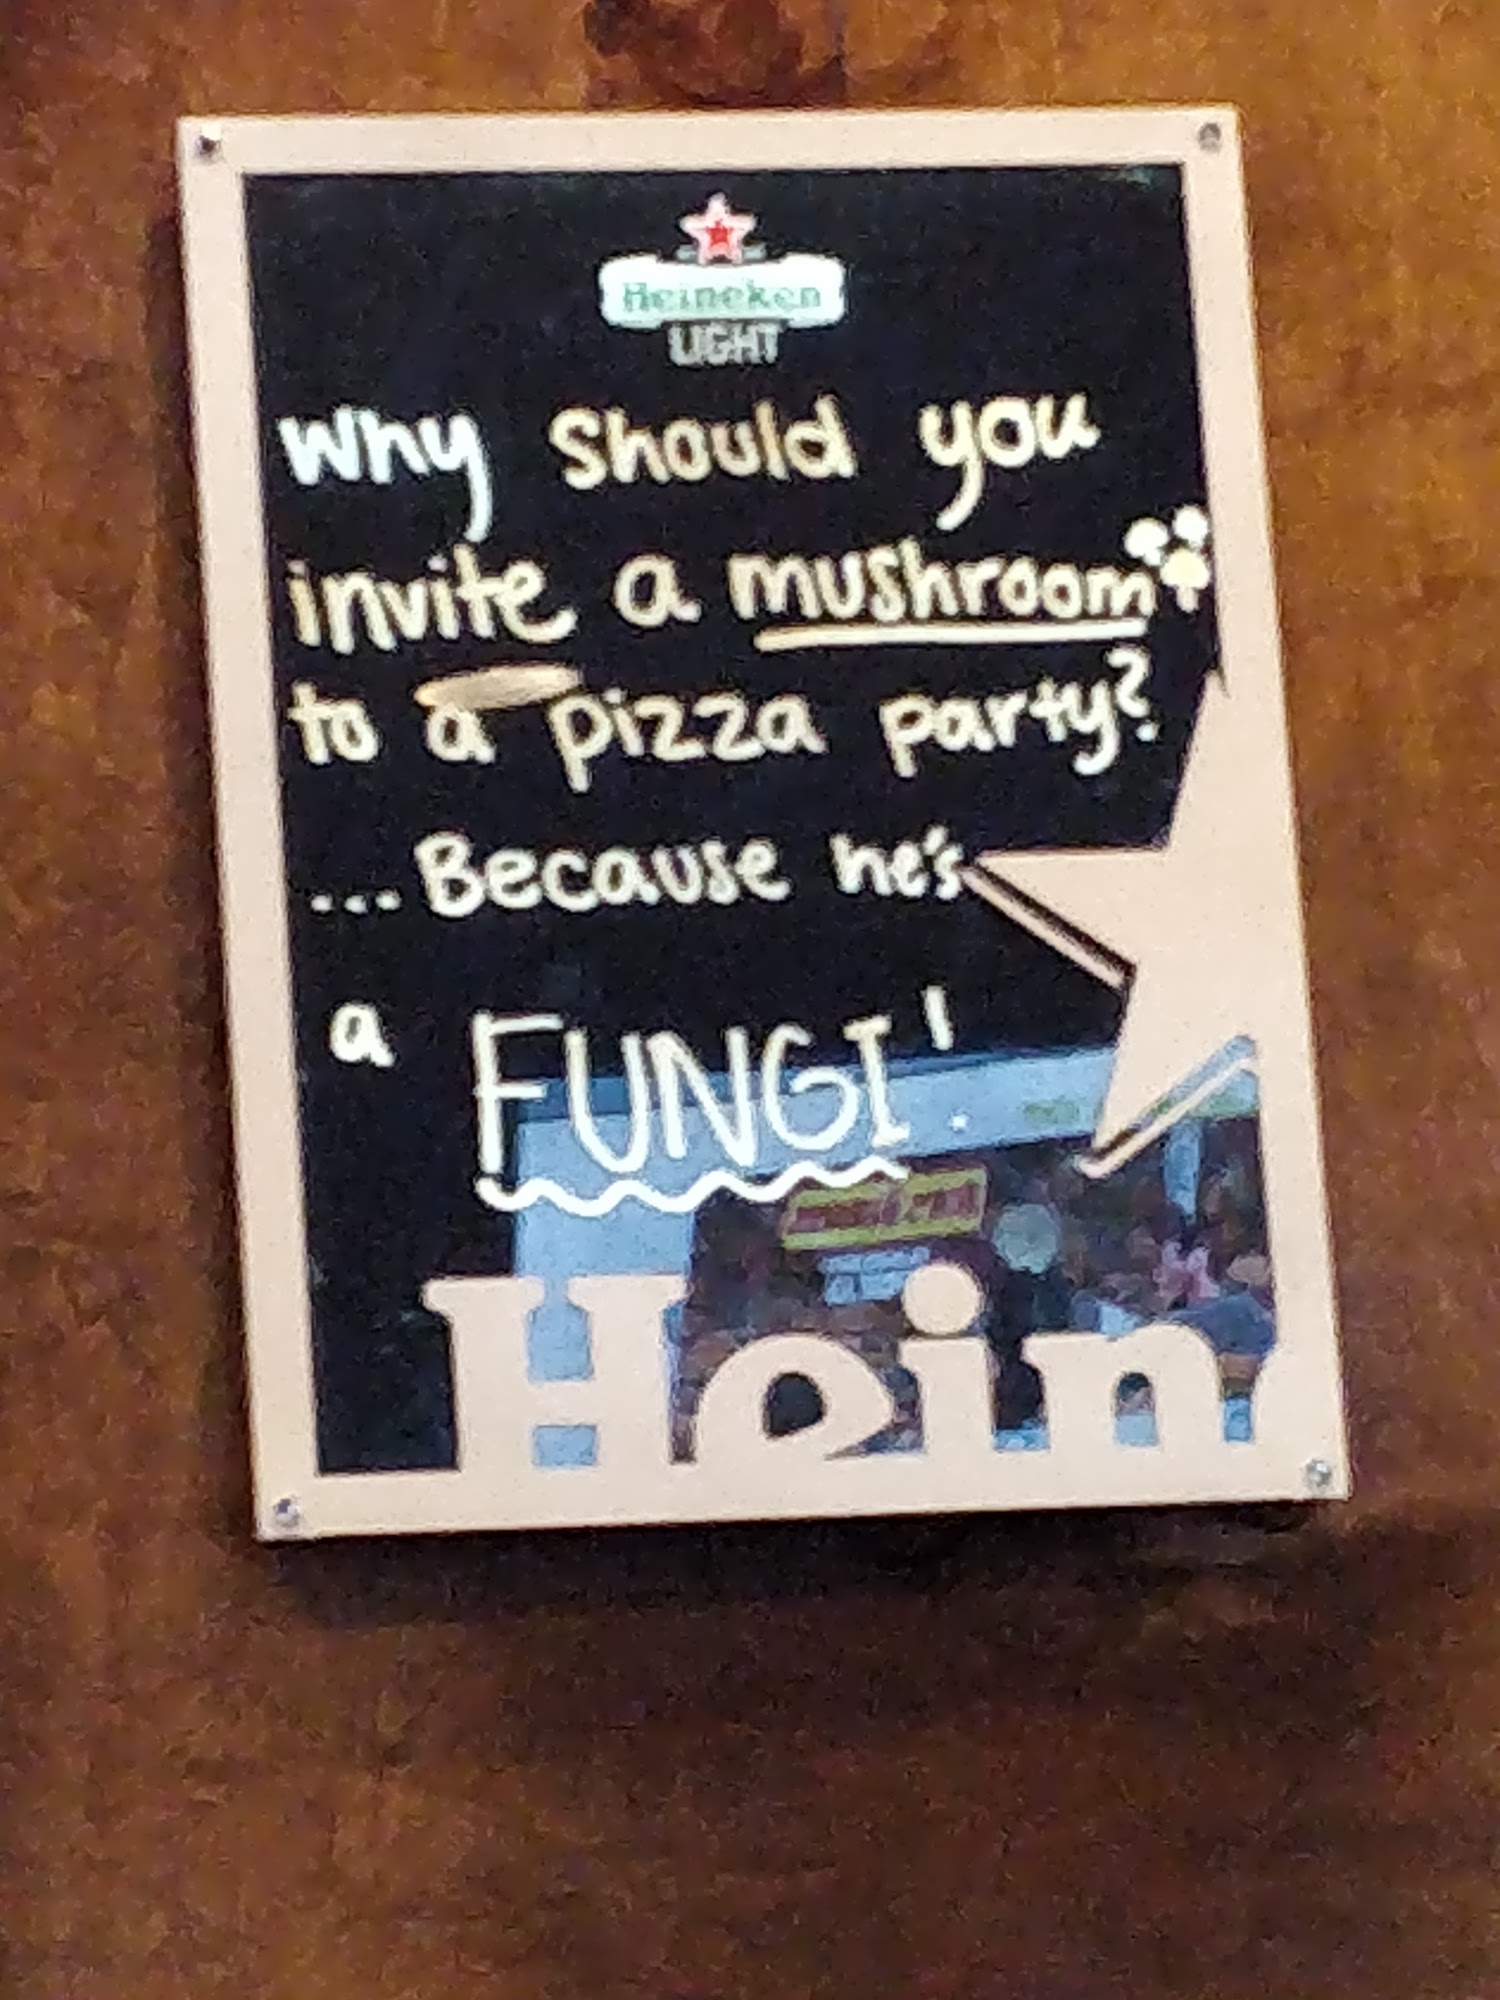 Heineken
LIGHT
Why Should you
invite a mushroom
to a pizza party?
... Because he's
a FUNGI!
Hein